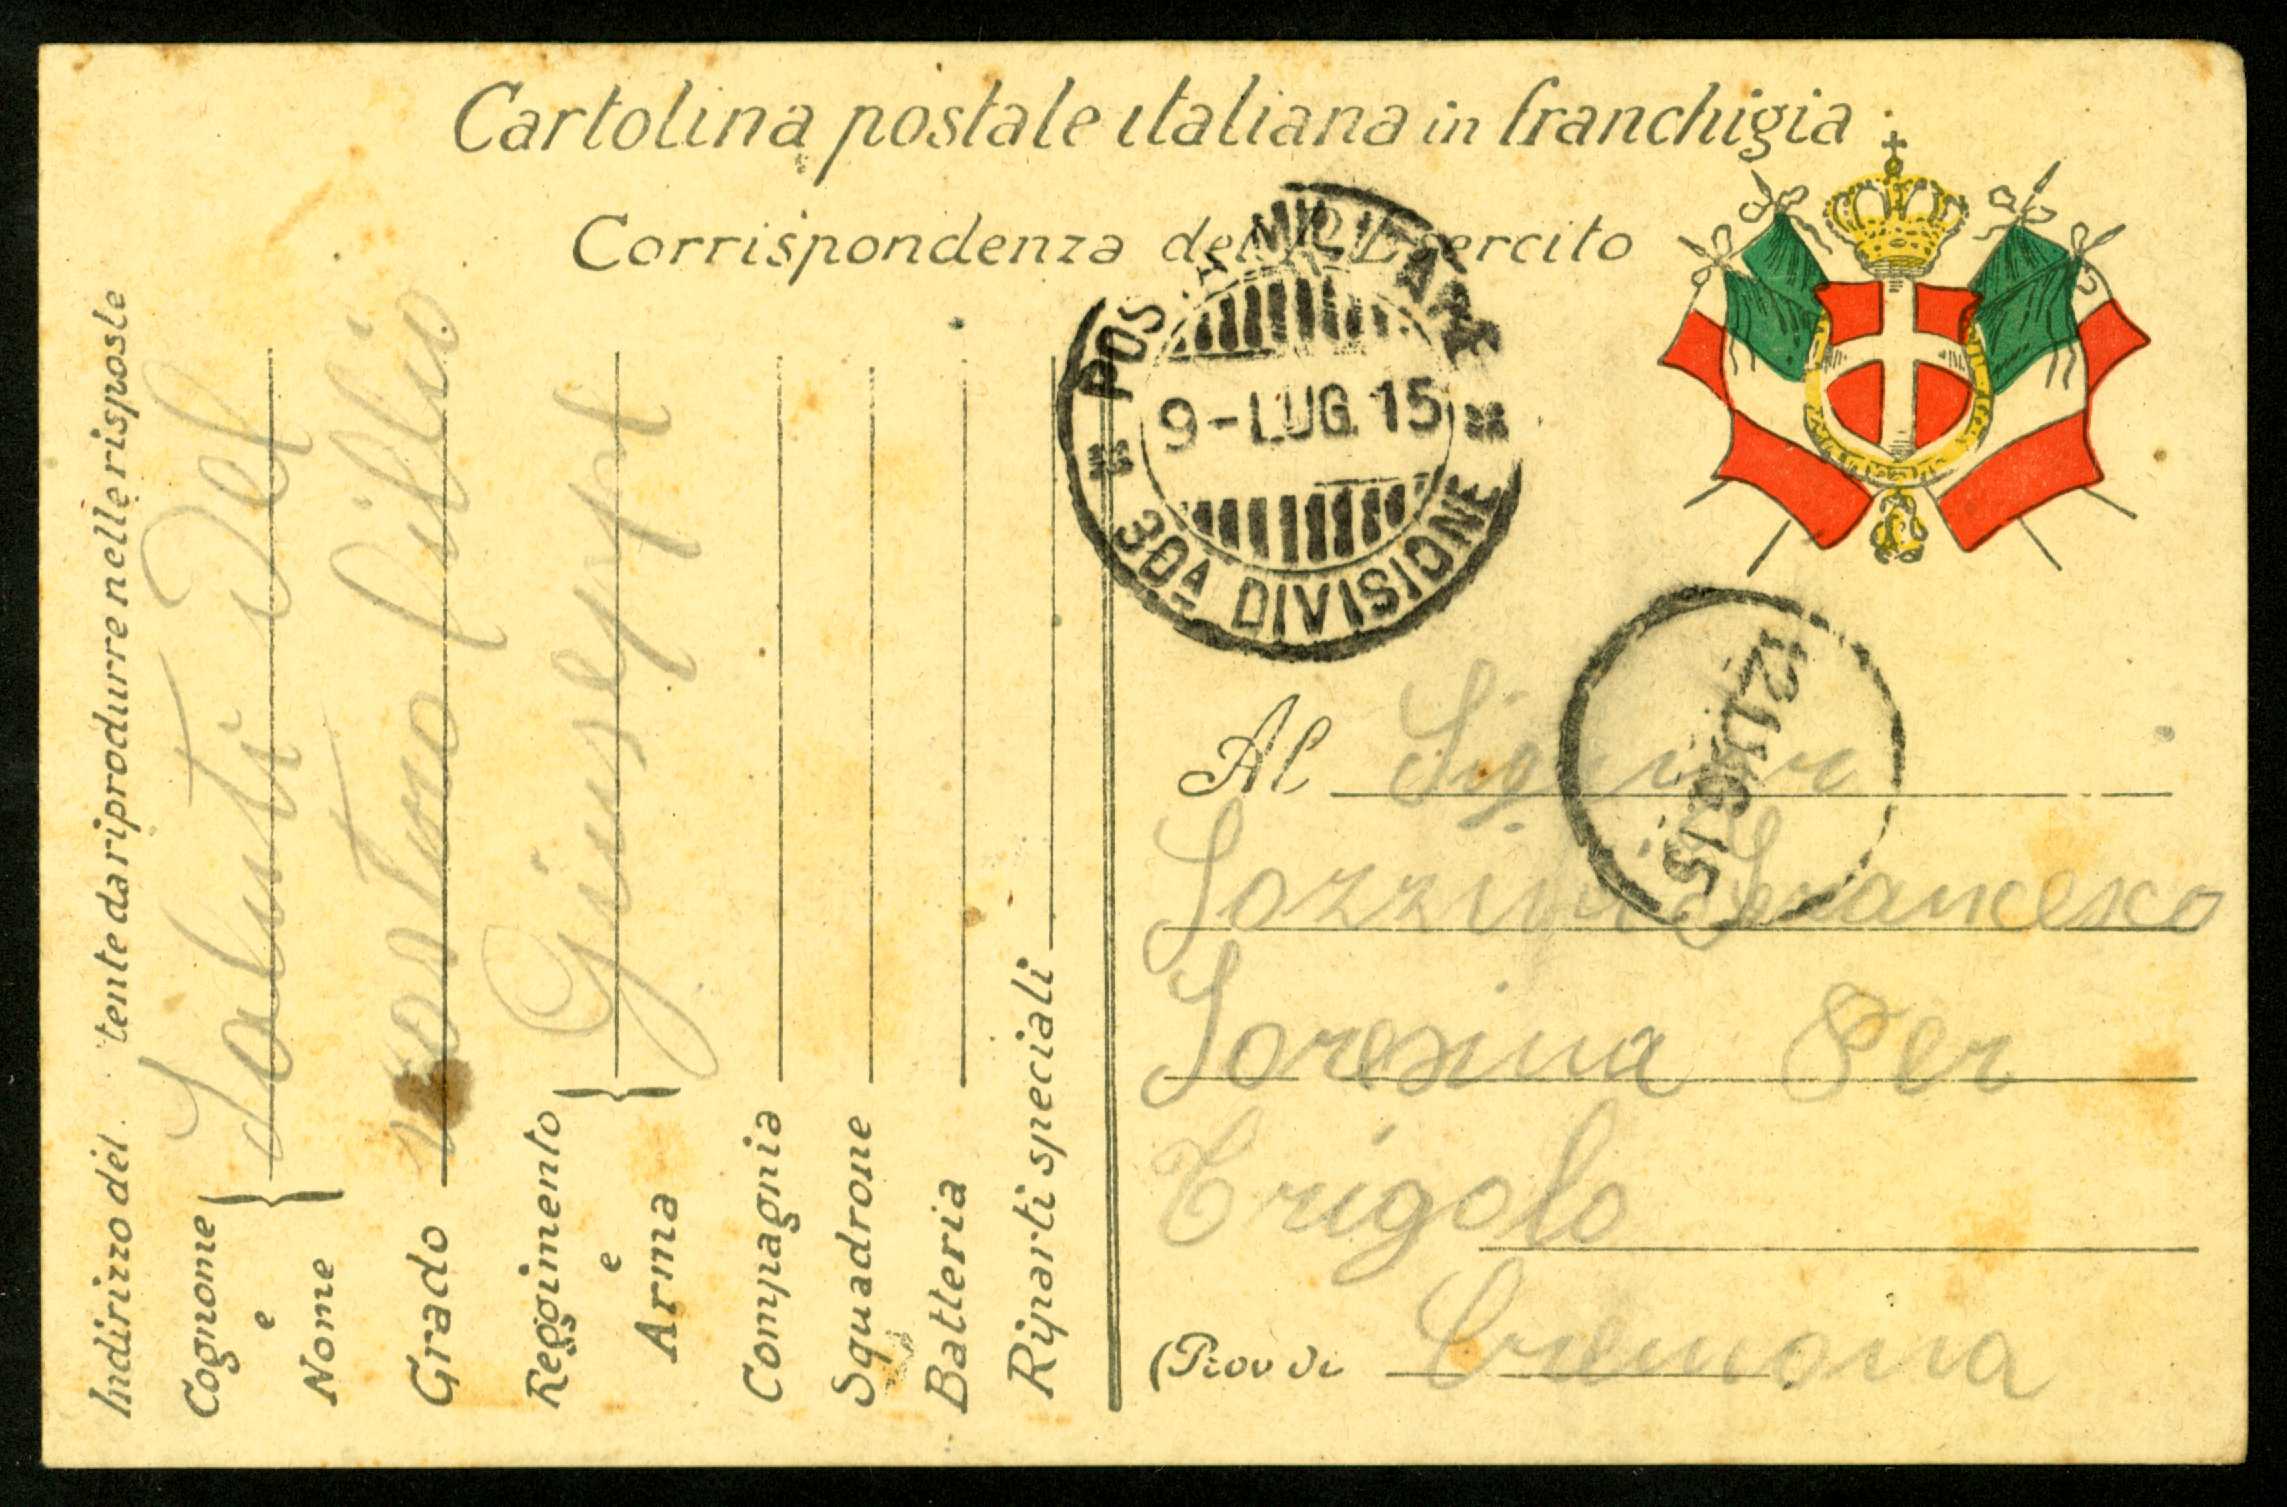 Cartolina postale italiana in franchigia
Corrispondenza dell'Esercito
POSTA MILITARE
9-LUG.15
30A DIVISIONE
12 LUG 15
Al Signor
Sozzini Francesco
Soresina Per
Trigolo
(Prov di Cremona
Indirizzo del tente da riprodurre nelle risposte
Cognome e Nome
Saluti del
Grado vostro fillio
Reggimento e Arma
Giuseppe
Compagnia
Squadrone
Batteria
Riparti speciali